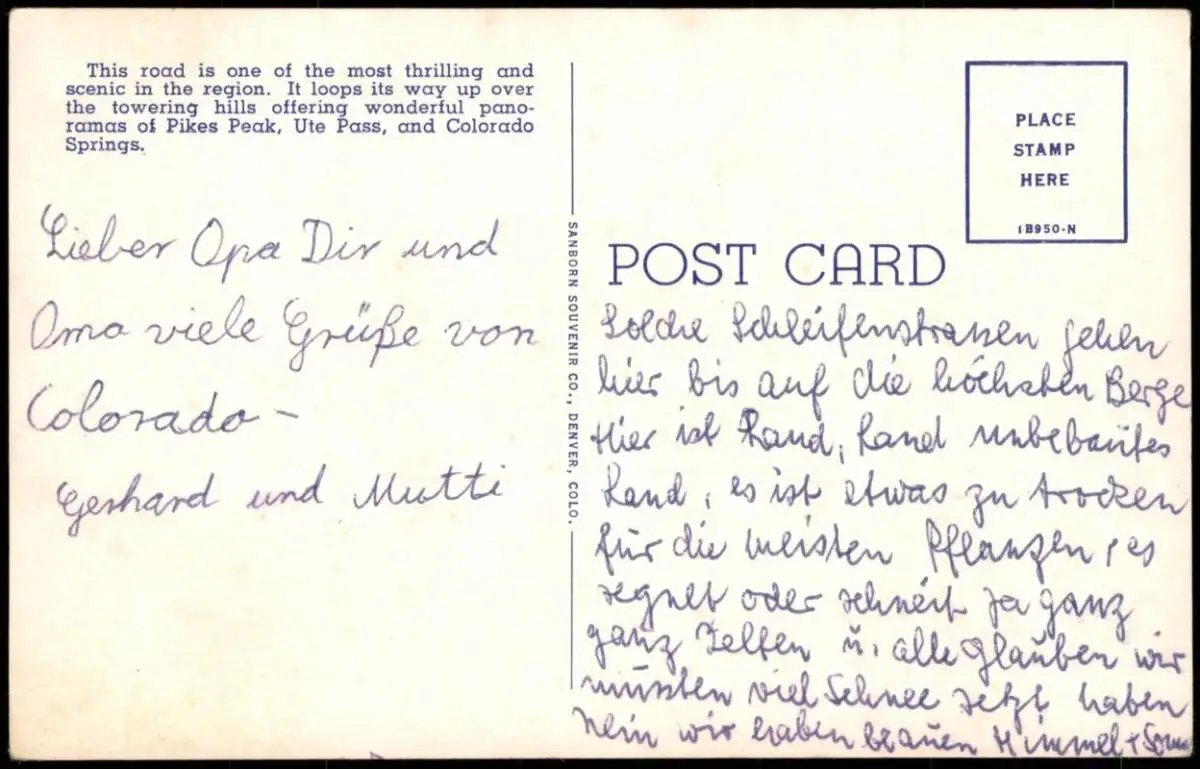 This road is one of the most thrilling and
scenic in the region. It loops its way up over
the towering hills offering wonderful pano-
ramas of Pikes Peak, Ute Pass, and Colorado
Springs.
Lieber Opa Dir und
Oma viele Grüße von
Colorado -
Gerhard und Mutti
SANBORN SOUVENIR CO., DENVER, COLO.
PLACE
STAMP
HERE
1B950-N
POST CARD
Solche Schleifenstrassen gehen
hier bis auf die höchsten Berge
Hier ist Land, Land unbebautes
Land, es ist etwas zu trocken
für die meisten Pflanzen, es
regnet oder schneit ja ganz
ganz selten ü. alle glauben wir
müssten viel Schnee jetzt haben
Nein wir haben blauen Himmel +